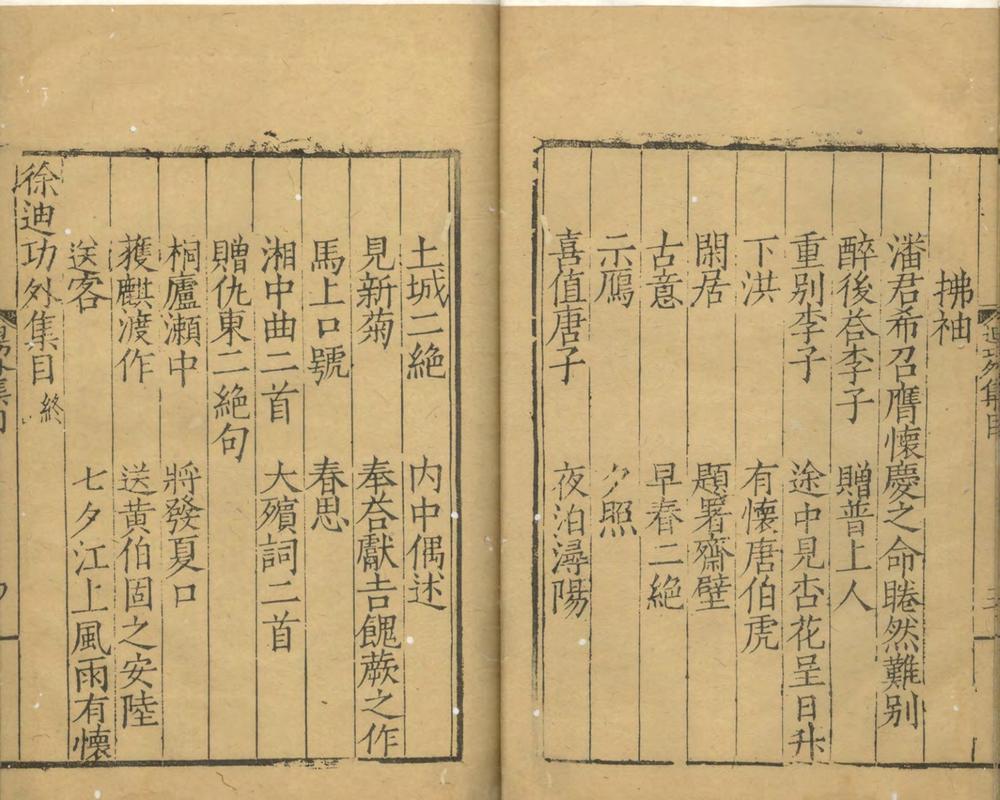 拂袖
潘君希召膺懷慶之命睠然難別
醉後荅李子 贈普上人
重別李子 途中見杏花呈日升
下洪 有懷唐伯虎
閑居 題署齋壁
古意 早春二絶
示鴈 夕照
喜值唐子 夜泊潯陽
土城二絶 内中偶述
見新菊 奉荅獻吉餽蕨之作
馬上口號 春思
湘中曲二首 大殯詞二首
贈仇東二絶句
桐廬瀬中 將發夏口
蒦麒渡作 送黄伯固之安陸
送客 七夕江上風雨有懷
徐迪功外集目 終